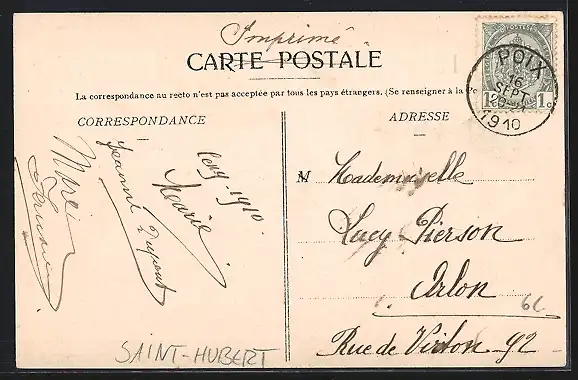 Imprimé
CARTE POSTALE
La correspondance au recto n'est pas acceptée par tous les pays étrangers. (Se renseigner à la Po
CORRESPONDANCE
ADRESSE
POIX
16
SEPT
1910
1c
1c
1910
Marie
Jeanne Dupont
M Mademoiselle
Lucy Pierson
Arlon
Rue de Virton 92
SAINT-HUBERT